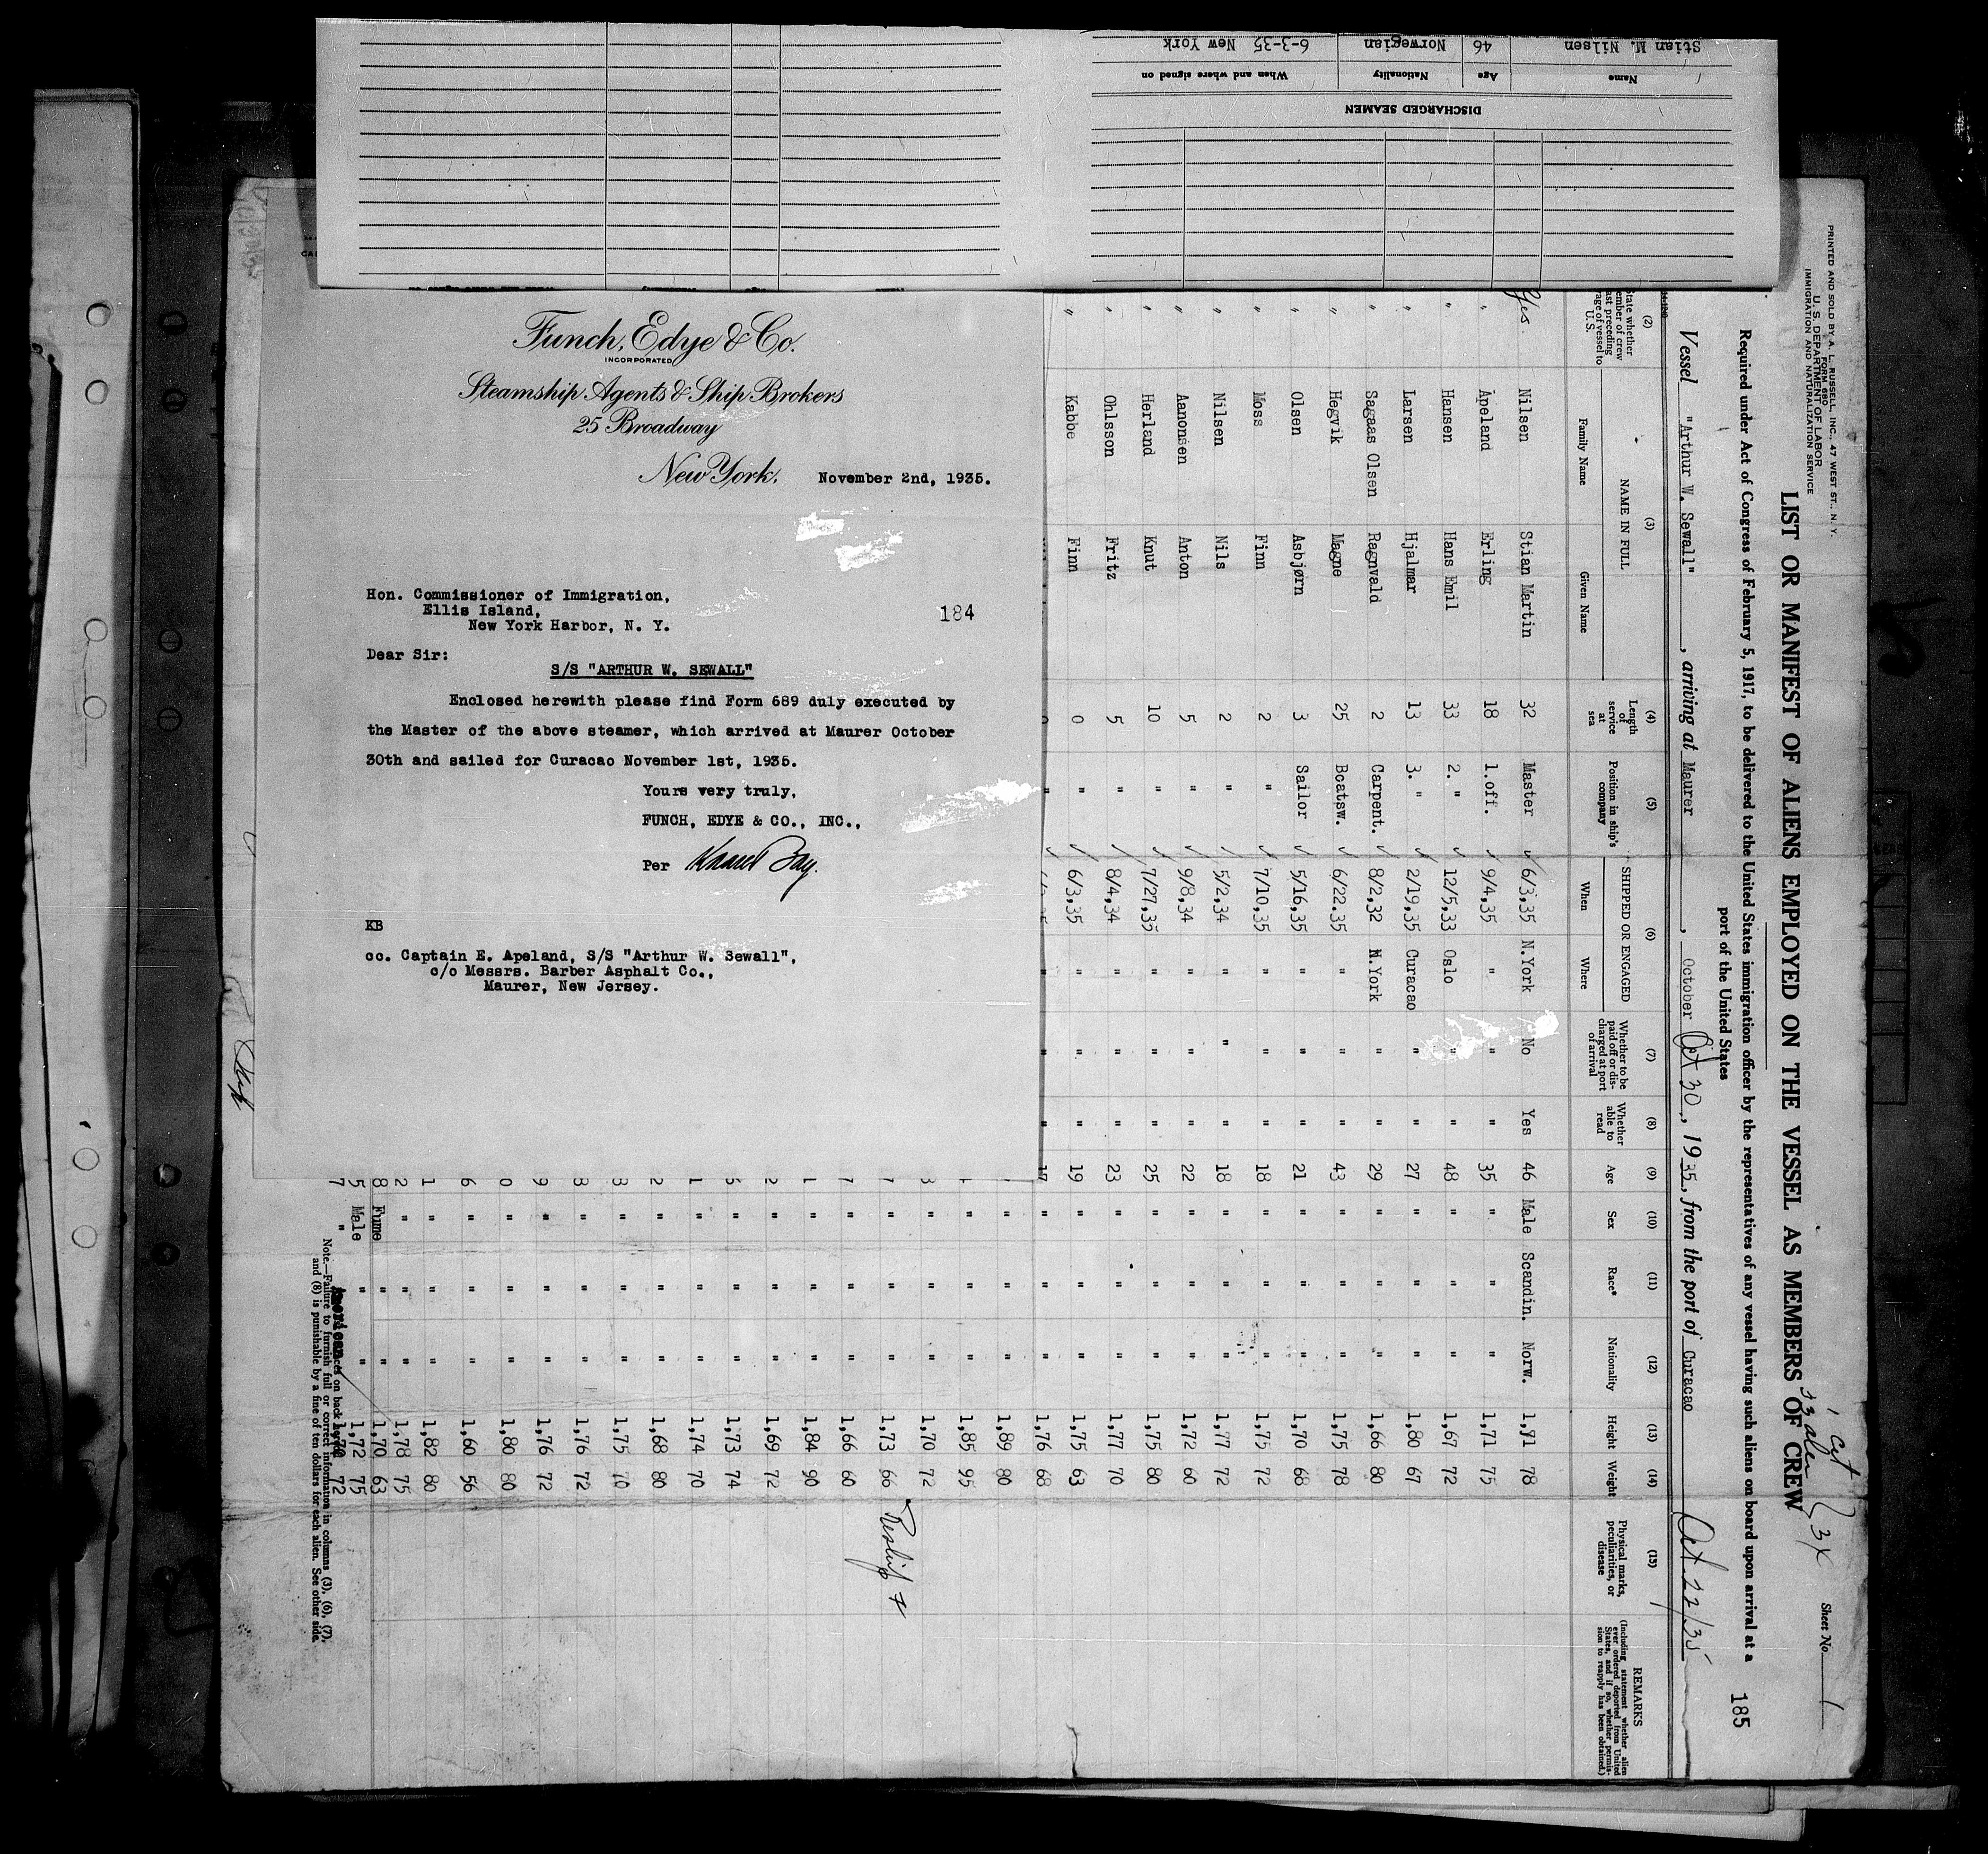 Stian M. Nilsen 46 Norwegian 6-3-35 New York
Name Age Nationality When and where signed on
DISCHARGED SEAMEN
Funch, Edye & Co.
INCORPORATED
Steamship Agents & Ship Brokers
25 Broadway
New York. November 2nd, 1935.
Hon. Commissioner of Immigration,
Ellis Island,
New York Harbor, N. Y.
184
Dear Sir:
S/S "ARTHUR W. SEWALL"
Enclosed herewith please find Form 689 duly executed by
the Master of the above steamer, which arrived at Maurer October
30th and sailed for Curacao November 1st, 1935.
Yours very truly,
FUNCH, EDYE & CO., INC.,
Per
KB
cc. Captain E. Apeland, S/S "Arthur W. Sewall",
c/o Messrs. Barber Asphalt Co.,
Maurer, New Jersey.
PRINTED AND SOLD BY A. L. RUSSELL, INC., 47 WEST ST., N. Y.
FORM 680
U. S. DEPARTMENT OF LABOR
IMMIGRATION AND NATURALIZATION SERVICE
1 cyt
33 alien } 34
Sheet No. 1
LIST OR MANIFEST OF ALIENS EMPLOYED ON THE VESSEL AS MEMBERS OF CREW
185
Required under Act of Congress of February 5, 1917, to be delivered to the United States immigration officer by the representatives of any vessel having such aliens on board upon arrival at a
port of the United States
Vessel "Arthur W. Sewall", arriving at Maurer, October Oct 30, 1935, from the port of Curacao Oct. 22/35
(2) (3) (4) (5) (6) (7) (8) (9) (10) (11) (12) (13) (14) (15)
State whether member of crew last preceding voyage of vessel to U. S.
NAME IN FULL
Family Name Given Name
Length of service at sea
Position in ship's company
SHIPPED OR ENGAGED
When Where
Whether to be paid off or discharged at port of arrival
Whether able to read
Age Sex Race* Nationality Height Weight
Physical marks, peculiarities, or disease
REMARKS
(Including statement whether alien ever ordered deported from United States, and if so, whether permission to reapply has been obtained.)
Yes Nilsen Stian Martin 32 Master ✓ 6/3,35 N.York No Yes 46 Male Scandin. Norw. 1,71 78
" Apeland Erling 18 1.off. ✓ 9/4,35 " " " 35 " " " 1,71 75
" Hansen Hans Emil 33 2. " ✓ 12/5,33 Oslo " " 48 " " " 1,67 72
" Larsen Hjalmar 13 3. " ✓ 2/19,35 Curacao " " 27 " " " 1,80 67
" Sagaas Olsen Ragnvald 2 Carpent. ✓ 8/2,32 N.York " " 29 " " " 1,66 80
" Hegvik Magne 25 Boatsw. ✓ 6/22.35 " " " 43 " " " 1,75 78
" Olsen Asbjørn 3 Sailor ✓ 5/16,35 " " " 21 " " " 1,70 68
" Moss Finn 2 " ✓ 7/10,35 " " " 18 " " " 1,75 72
" Nilsen Nils 2 " ✓ 5/2,34 " " " 18 " " " 1,77 72
" Aanonsen Anton 5 " ✓ 9/8,34 " " " 22 " " " 1,72 60
" Herland Knut 10 " ✓ 7/27,35 " " " 25 " " " 1,75 80
" Ohlsson Fritz 5 " ✓ 8/4,34 " " " 23 " " " 1,77 70
" Kabbe Finn 0 " ✓ 6/3,35 " " " 19 " " " 1,75 63
" " " " 17 " " " 1,76 68
" " " 1,89 80
" " " 1,85 95
" " " 1,70 72
7 " " " 1,73 66
7 " " " 1,66 60
1 " " " 1,84 90
2 " " " 1,69 72
" " " 1,73 74
1 " " " 1,74 70
2 " " " 1,68 80
3 " " " 1,75 70
3 " " " 1,76 72
9 " " " 1,76 72
0 " " " 1,80 80
6 " " " 1,60 56
1 " " " 1,82 80
2 " " " 1,78 75
8 Fume " " 1,70 63
5 Male " " 1,72 75
7 " American 1,70 72
Note.—Failure to furnish full or correct information in columns (3), (6), (7),
and (8) is punishable by a fine of ten dollars for each alien. See other side.